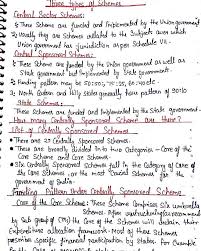 Three Types of Schemes
Central Sector Schemes:
These Scheme are funded and Implemented by the Union government
Usually they are Schemes related to the Subjects over which
Union government has jurisdiction as per Schedule VII.
Central Sponsored Schemes:
These Scheme are funded by the Union government as well as
State government but Implemented by State government
Funding pattern may be 50:50, 75:25, 60:40 etc
North Eastern and hilly state generally have pattern of 90:10
State Schemes:
These Schemes are funded and Implemented by the State government.
How many Centrally Sponsored Schemes are there?
List of Centrally Sponsored Schemes
There are 28 Centrally Sponsored Schemes
These are broadly divided into two Categories - Core of the
Core Scheme and Core Scheme
Six Centrally Sponsored Schemes fall in the Category of Core of
the Core Schemes, are the most Crucial Schemes for the
government of India
Funding Pattern Under Centrally Sponsored Scheme
Core of the Core Scheme: These Scheme Comprises six umbrella
Schemes. After
by Sub group of CM's the Core of the Core Scheme will retain their
Expenditure allocation framework, most of these schemes
Specific financial participation by States. For Example